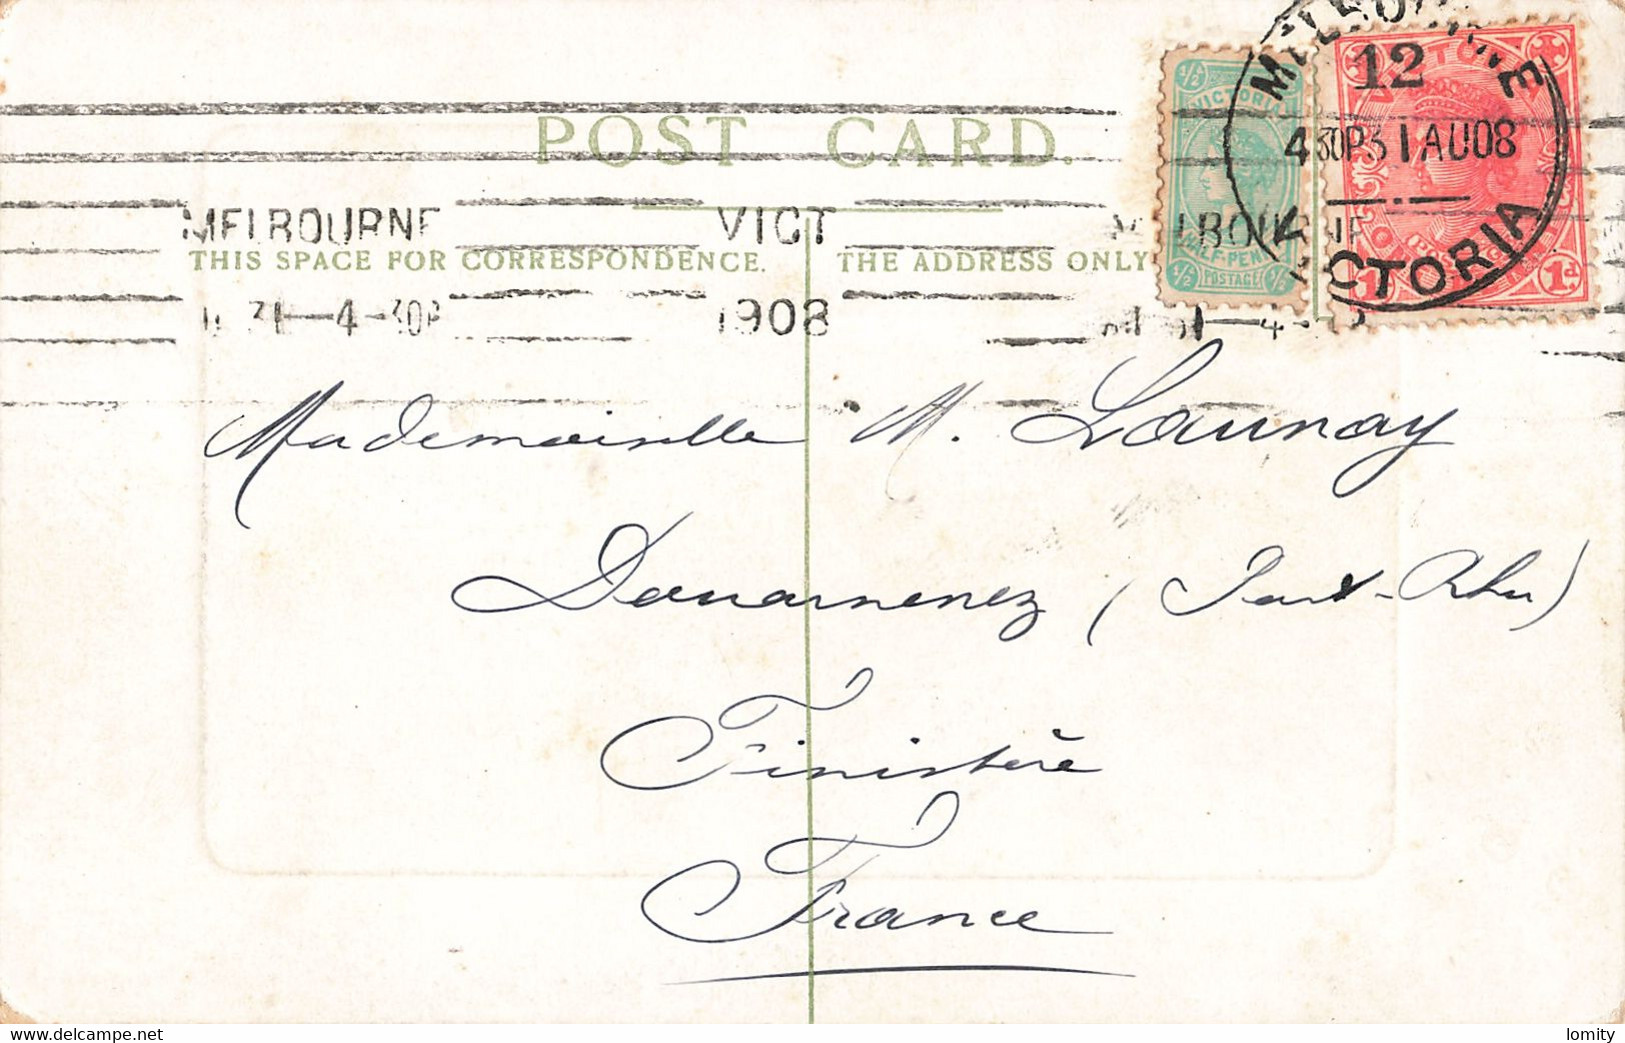 POST CARD.
MELBOURNE VICT
THIS SPACE FOR CORRESPONDENCE. THE ADDRESS ONLY
31-4-30P 1908
MELBOURNE
12
4 30P 31 AU 08
VICTORIA
1/2 1/2
VICTORIA
HALF-PENNY
1/2 POSTAGE 1/2
VICTORIA
1d
Mademoiselle M. Launay
Douarnenez (Port-Rhu)
Finistère
France
delcampe.net
lomity